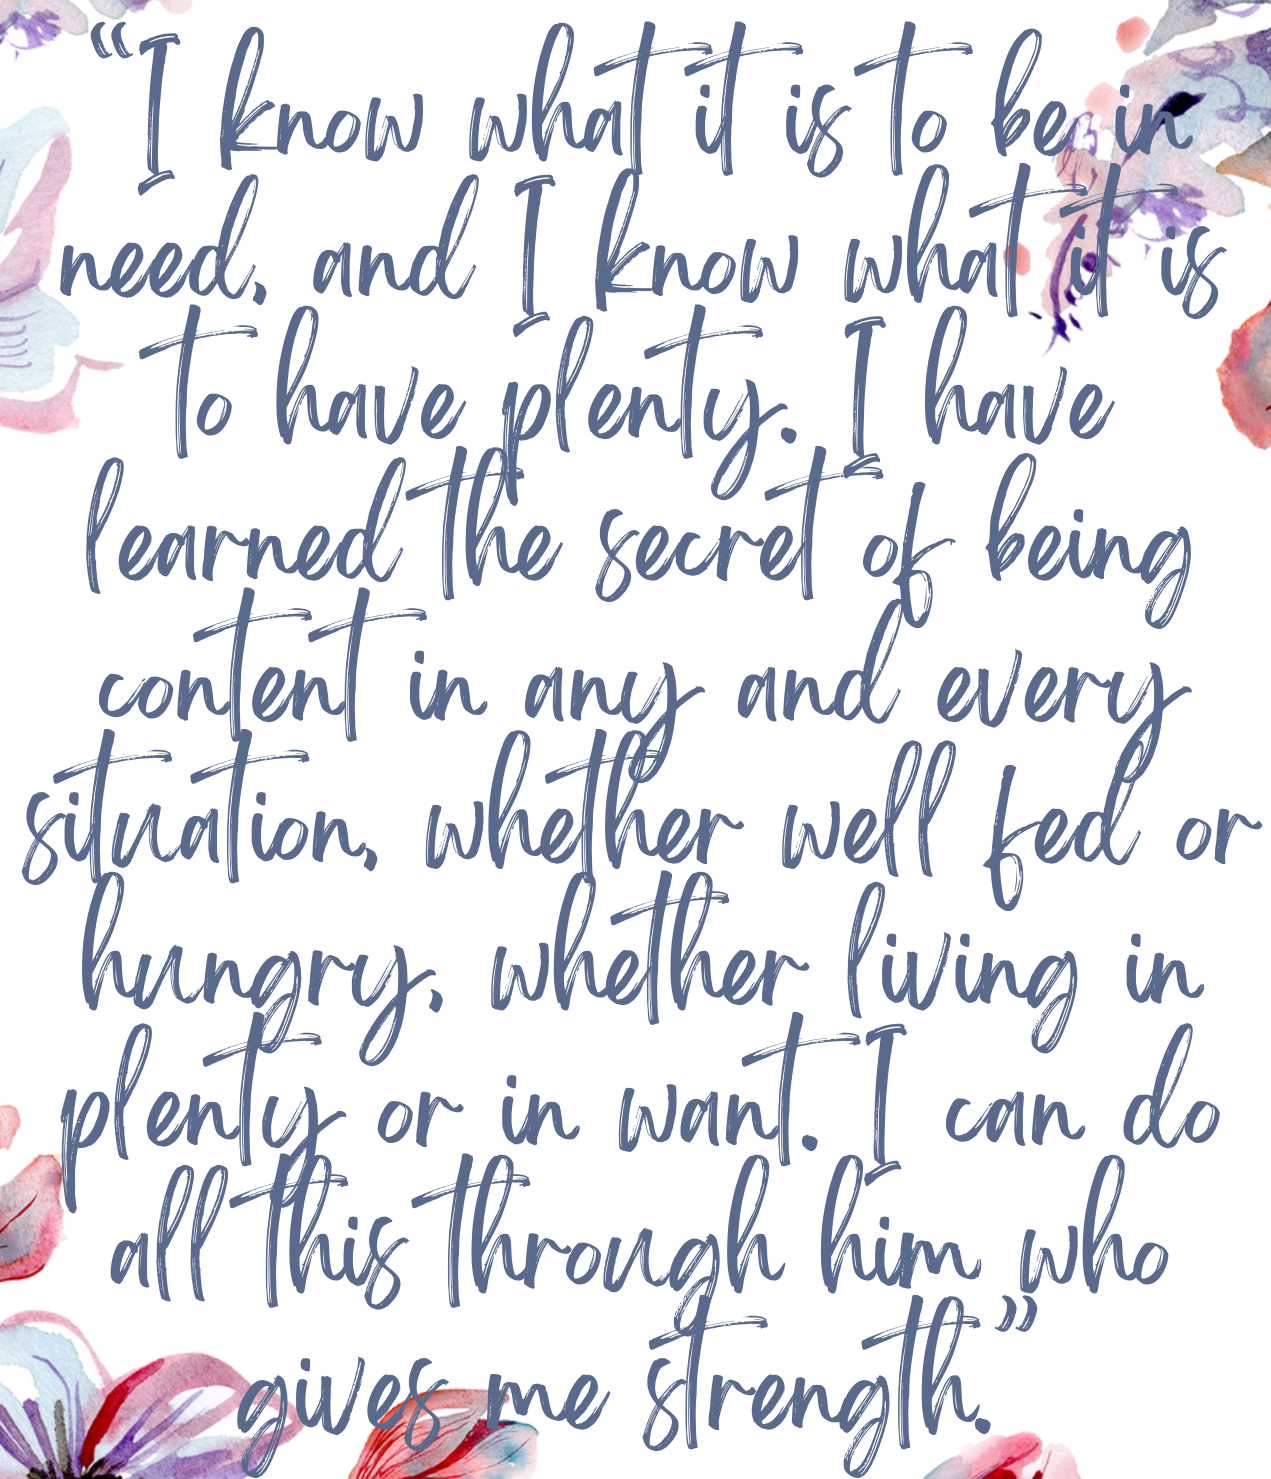 “I know what it is to be in
need, and I know what it is
to have plenty. I have
learned the secret of being
content in any and every
situation, whether well fed or
hungry, whether living in
plenty or in want. I can do
all this through him who
gives me strength.”